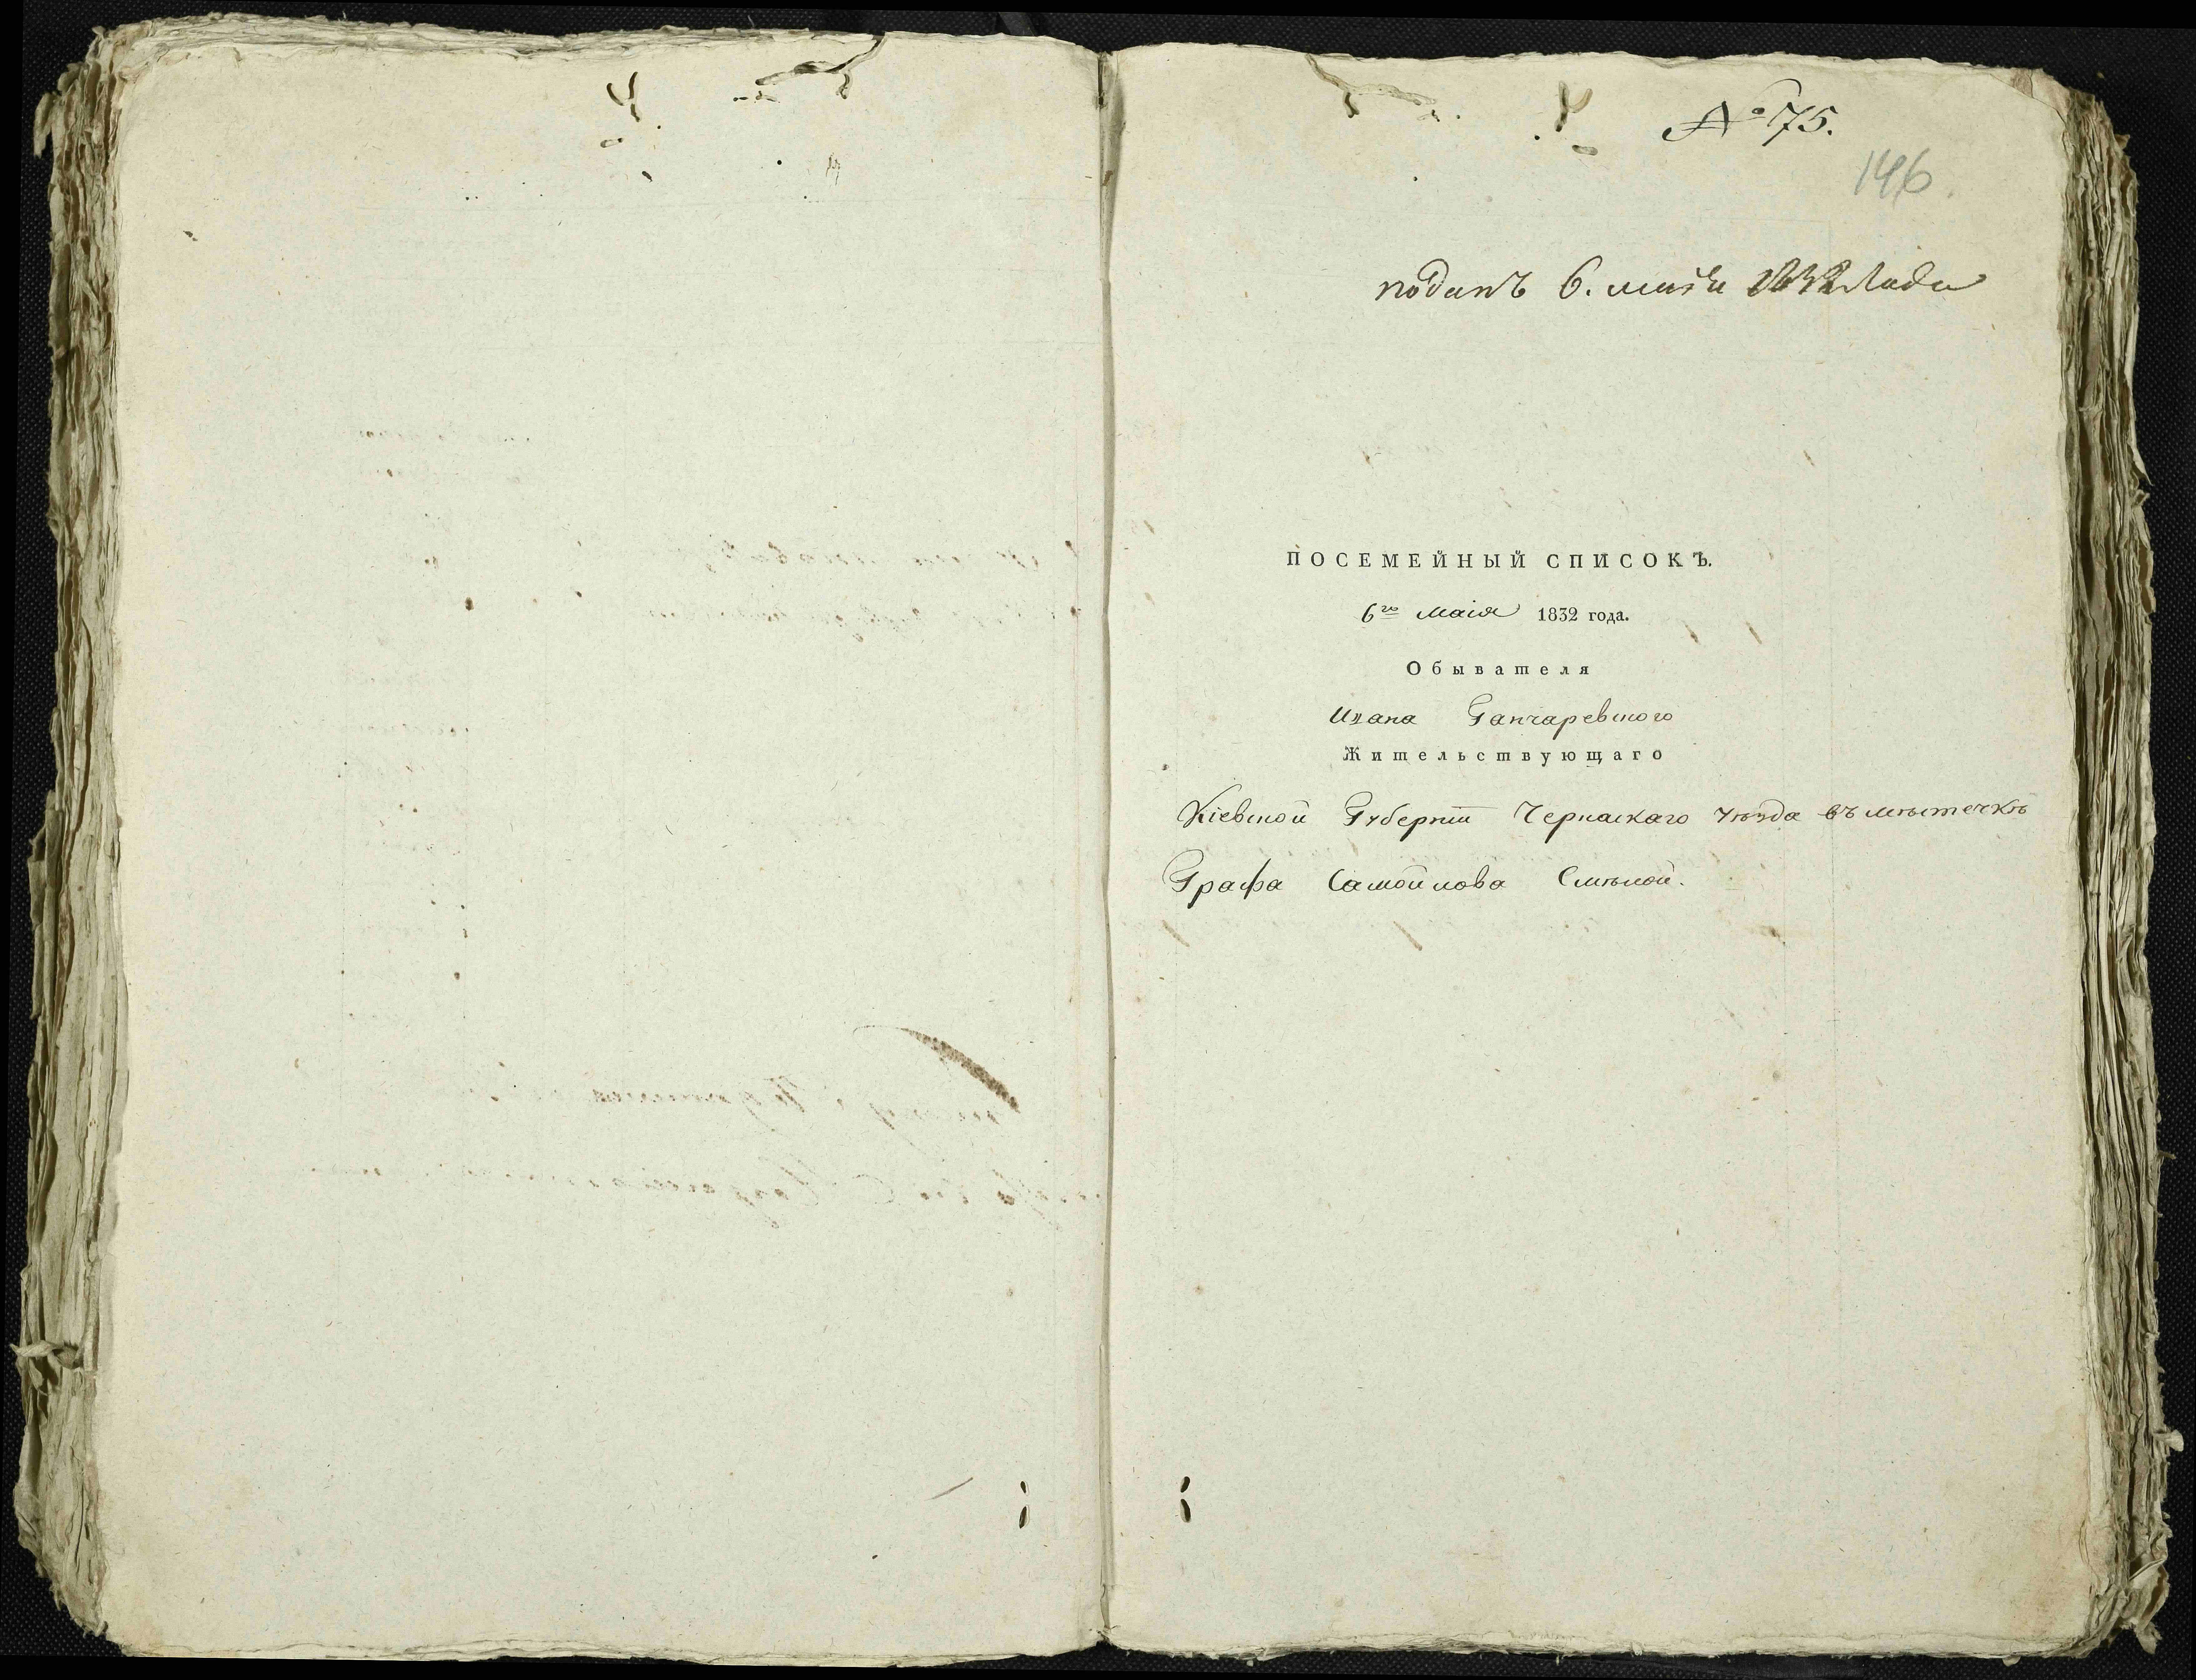 № 75.
146
поданъ 6. маія 1832 года
ПОСЕМЕЙНЫЙ СПИСОКЪ.
6го Маія 1832 года.
Обывателя
Ивана Ганчаревского
Жительствующаго
Кіевской Губерніи Черкаскаго уѣзда въ мѣстечкѣ
Графа Самойлова Смѣлой.